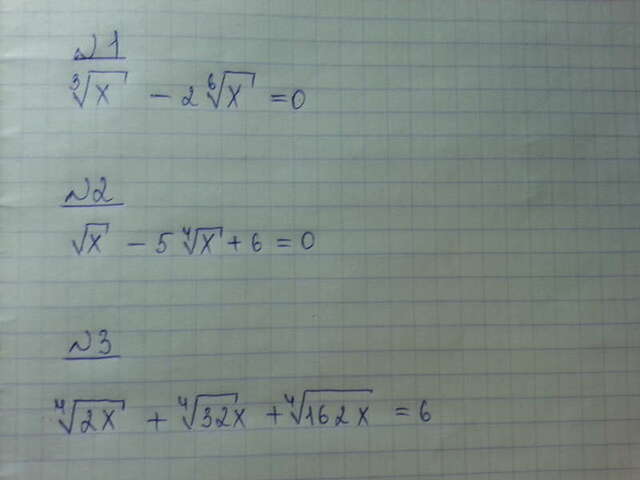 №1
∛x − 2 ⁶√x = 0
№2
√x − 5 ⁴√x + 6 = 0
№3
⁴√2x + ⁴√32x + ⁴√162x = 6